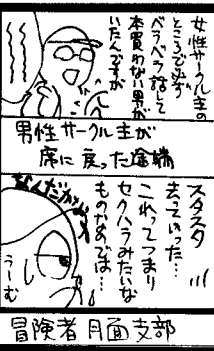 女性サークル主の
ところで必ず
ベラベラ話して
本買わない男が
いたんですが
男性サークル主が
席に戻った途端
スタスタ
去っていった…
これってつまり
セクハラみたいな
ものなのでは…
なんだかなぁ
うーむ
冒険者月面支部